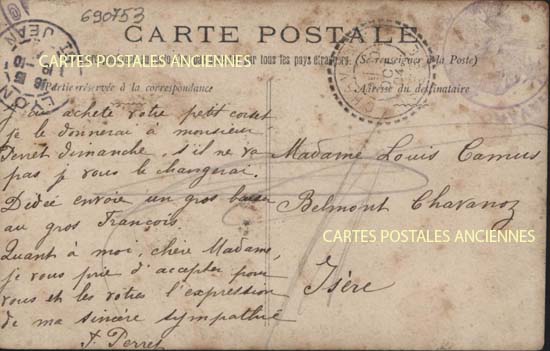 690753
CARTE POSTALE
tous les pays étrangers. (Se renseigner à la Poste)
Partie réservée à la correspondance
Adresse du destinataire
CARTES POSTALES ANCIENNES
J'ai acheté votre petit corset
je le donnerai à monsieur
Perret dimanche, s'il ne va
pas je vous le changerai.
Dédée envoie un gros baiser
au gros François.
Quant à moi, chère Madame,
je vous prie d'accepter pour
vous et les vôtres l'expression
de ma sincère sympathie
J. Perret
Madame Louis Camus
Belmont Chavanoz
CARTES POSTALES ANCIENNES
Isère